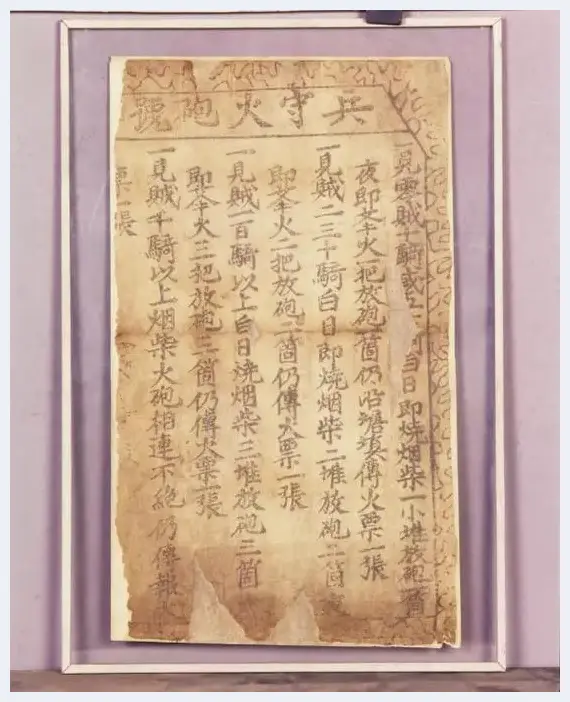 兵守火砲號
一見零賊十騎或 白日即燒烟柴一小堆放砲一箇
夜即芟干火一把放砲一箇仍沿塘填傳火票一張
一見賊二三十騎白日即燒烟柴二堆放砲二箇
即芟干火二把放砲二箇仍傳火票一張
一見賊一百騎以上白日燒烟柴三堆放砲三箇
即芟干火三把放砲三箇仍傳火票一張
一見賊千騎以上烟柴火砲相連不絕仍傳報火
票一張